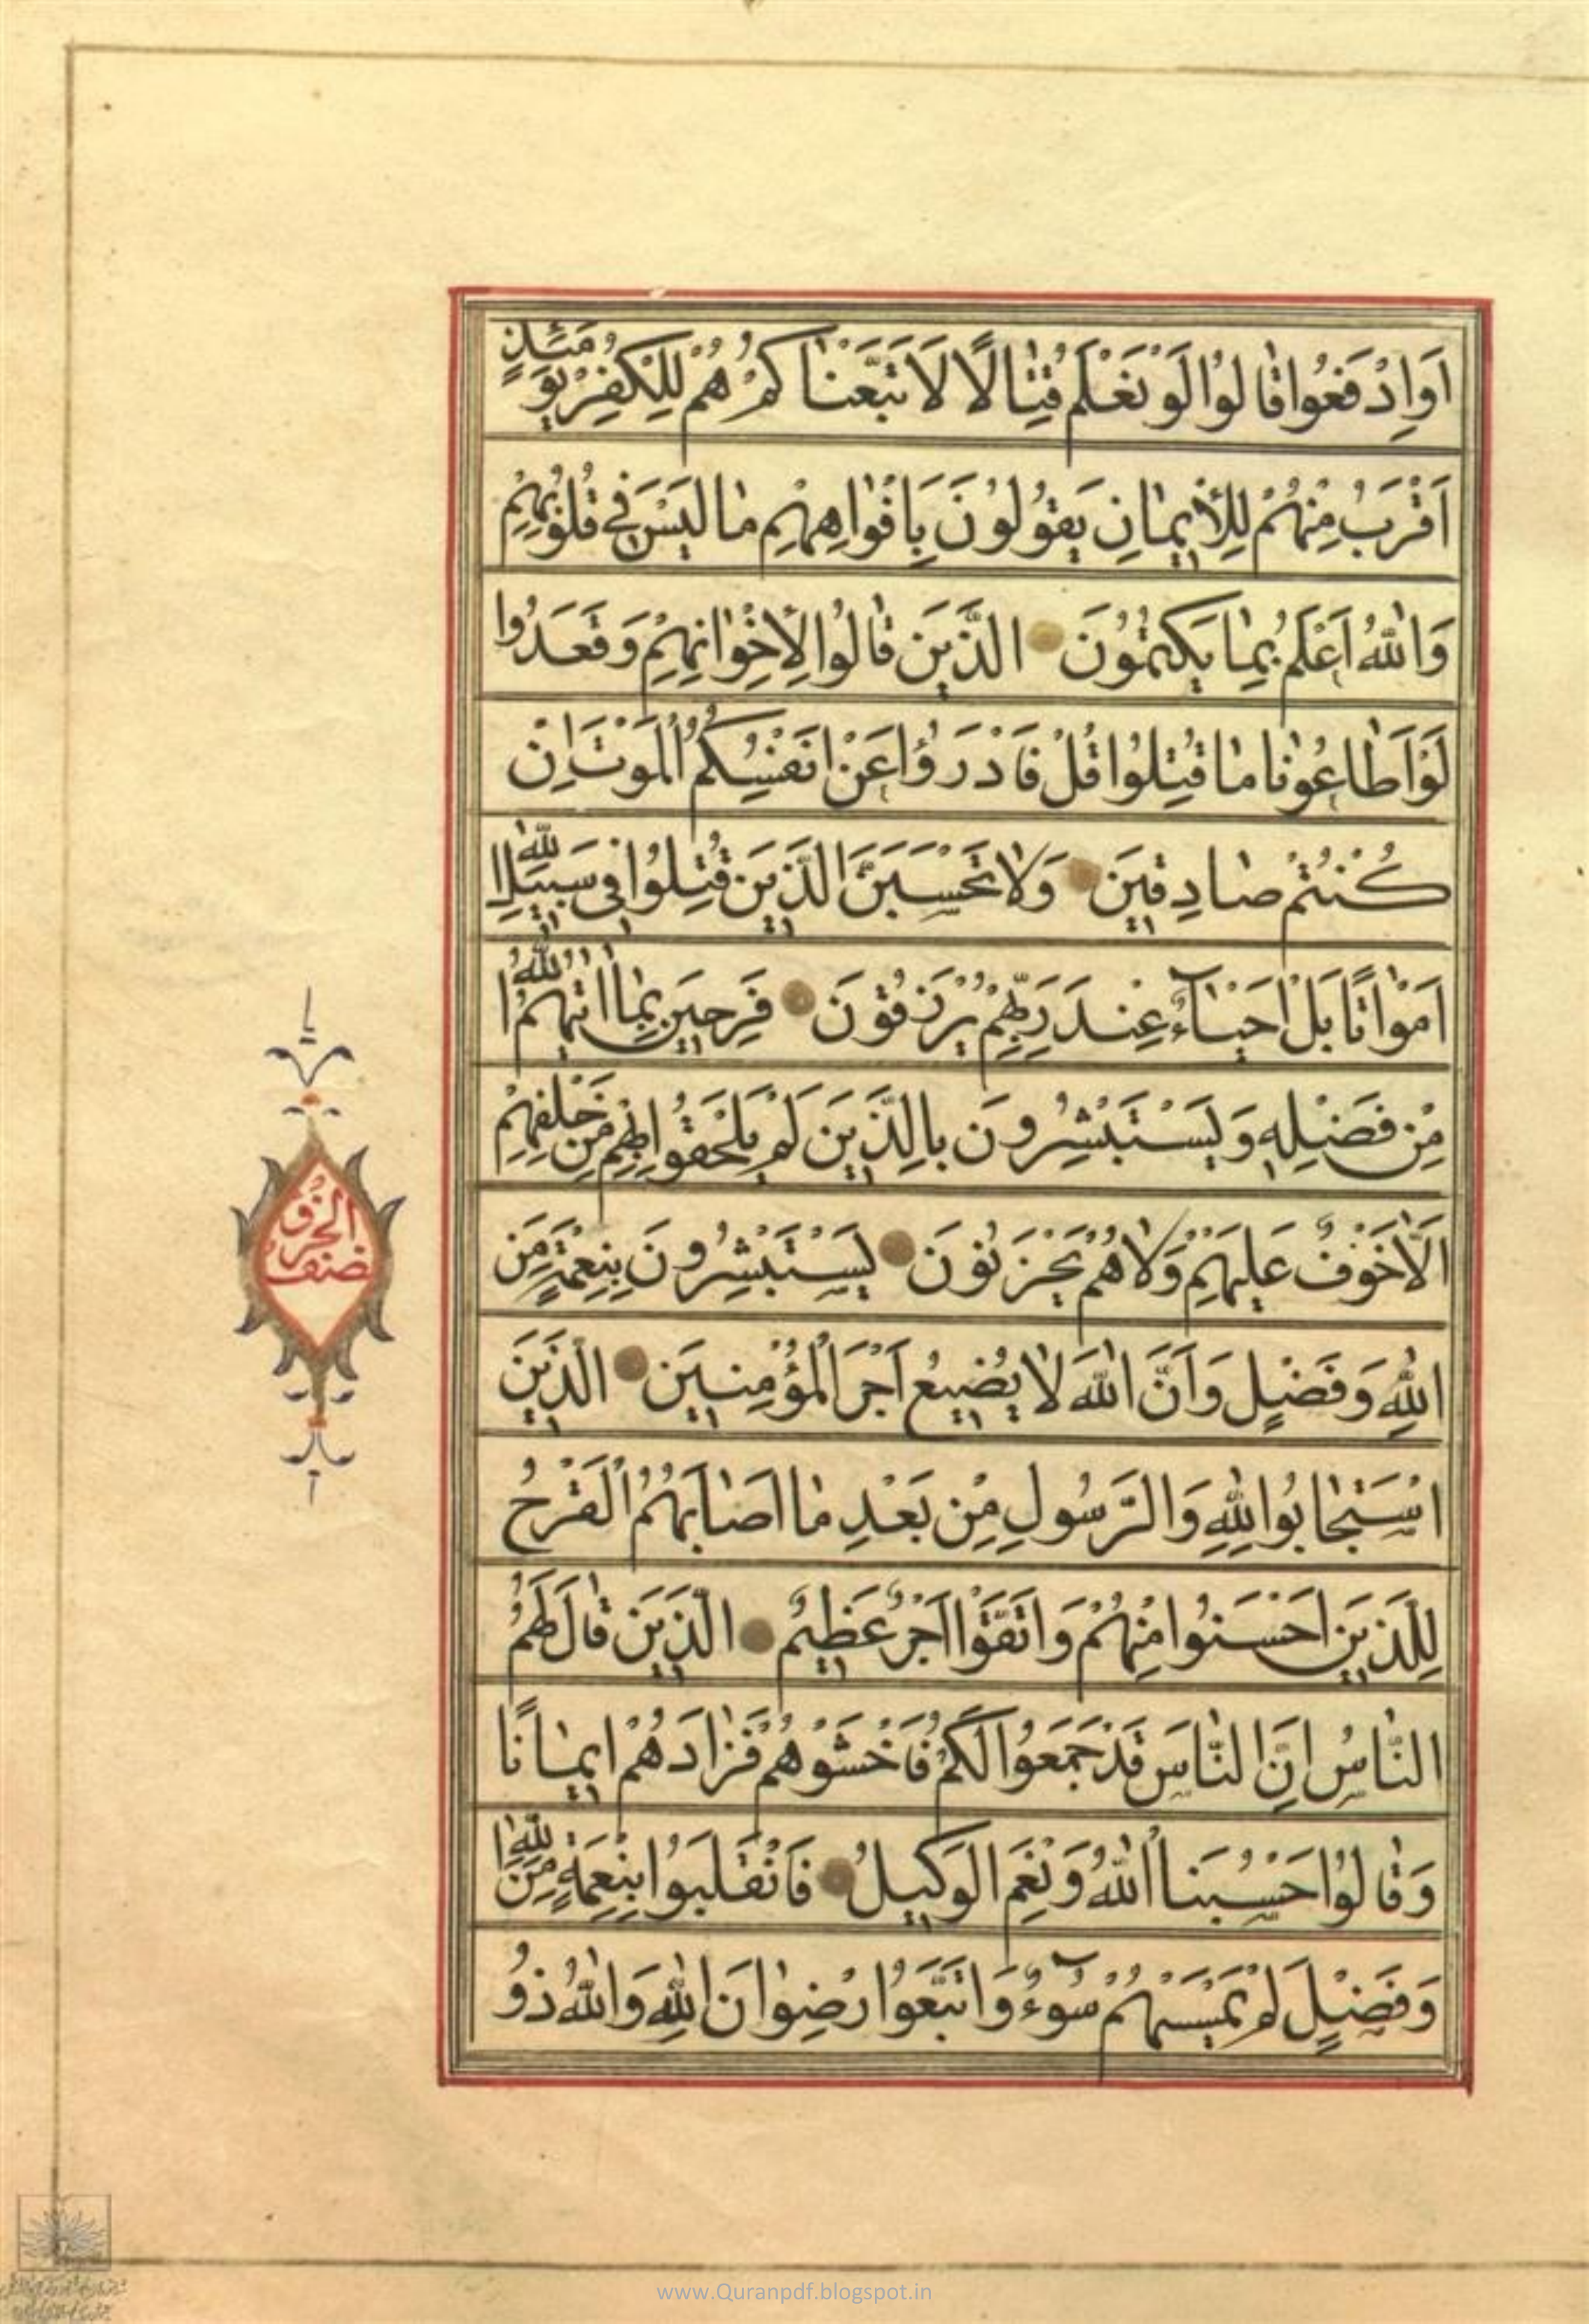 اَوِادْفَعُوا قٰالُوا لَوْ نَعْلَمُ قِتٰالًا لَاتَّبَعْنٰاكُمْ هُمْ لِلْكُفْرِ يَوْمَئِذٍ
اَقْرَبُ مِنْهُمْ لِلْاٖيمٰانِ يَقُولُونَ بِاَفْوٰاهِهِمْ مٰا لَيْسَ فٖى قُلُوبِهِمْ
وَاللّٰهُ اَعْلَمُ بِمٰا يَكْتُمُونَ الَّذٖينَ قٰالُوا لِاِخْوٰانِهِمْ وَقَعَدُوا
لَوْ اَطٰاعُونٰا مٰا قُتِلُوا قُلْ فَادْرَؤُا عَنْ اَنْفُسِكُمُ الْمَوْتَ اِنْ
كُنْتُمْ صٰادِقٖينَ وَلٰا تَحْسَبَنَّ الَّذٖينَ قُتِلُوا فٖى سَبٖيلِ اللّٰهِ
اَمْوٰاتًا بَلْ اَحْيٰآءٌ عِنْدَ رَبِّهِمْ يُرْزَقُونَ فَرِحٖينَ بِمٰا اٰتٰيهُمُ اللّٰهُ
مِنْ فَضْلِهٖ وَيَسْتَبْشِرُونَ بِالَّذٖينَ لَمْ يَلْحَقُوا بِهِمْ مِنْ خَلْفِهِمْ
اَلَّا خَوْفٌ عَلَيْهِمْ وَلٰا هُمْ يَحْزَنُونَ يَسْتَبْشِرُونَ بِنِعْمَةٍ مِنَ
اللّٰهِ وَفَضْلٍ وَاَنَّ اللّٰهَ لٰا يُضٖيعُ اَجْرَ الْمُؤْمِنٖينَ الَّذٖينَ
اسْتَجٰابُوا لِلّٰهِ وَالرَّسُولِ مِنْ بَعْدِ مٰا اَصٰابَهُمُ الْقَرْحُ
لِلَّذٖينَ اَحْسَنُوا مِنْهُمْ وَاتَّقَوْا اَجْرٌ عَظٖيمٌ الَّذٖينَ قٰالَ لَهُمُ
النّٰاسُ اِنَّ النّٰاسَ قَدْ جَمَعُوا لَكُمْ فَاخْشَوْهُمْ فَزٰادَهُمْ اٖيمٰانًا
وَقٰالُوا حَسْبُنَا اللّٰهُ وَنِعْمَ الْوَكٖيلُ فَانْقَلَبُوا بِنِعْمَةٍ مِنَ اللّٰهِ
وَفَضْلٍ لَمْ يَمْسَسْهُمْ سُوٓءٌ وَاتَّبَعُوا رِضْوٰانَ اللّٰهِ وَاللّٰهُ ذُو
نصف
الحزب
www.Quranpdf.blogspot.in